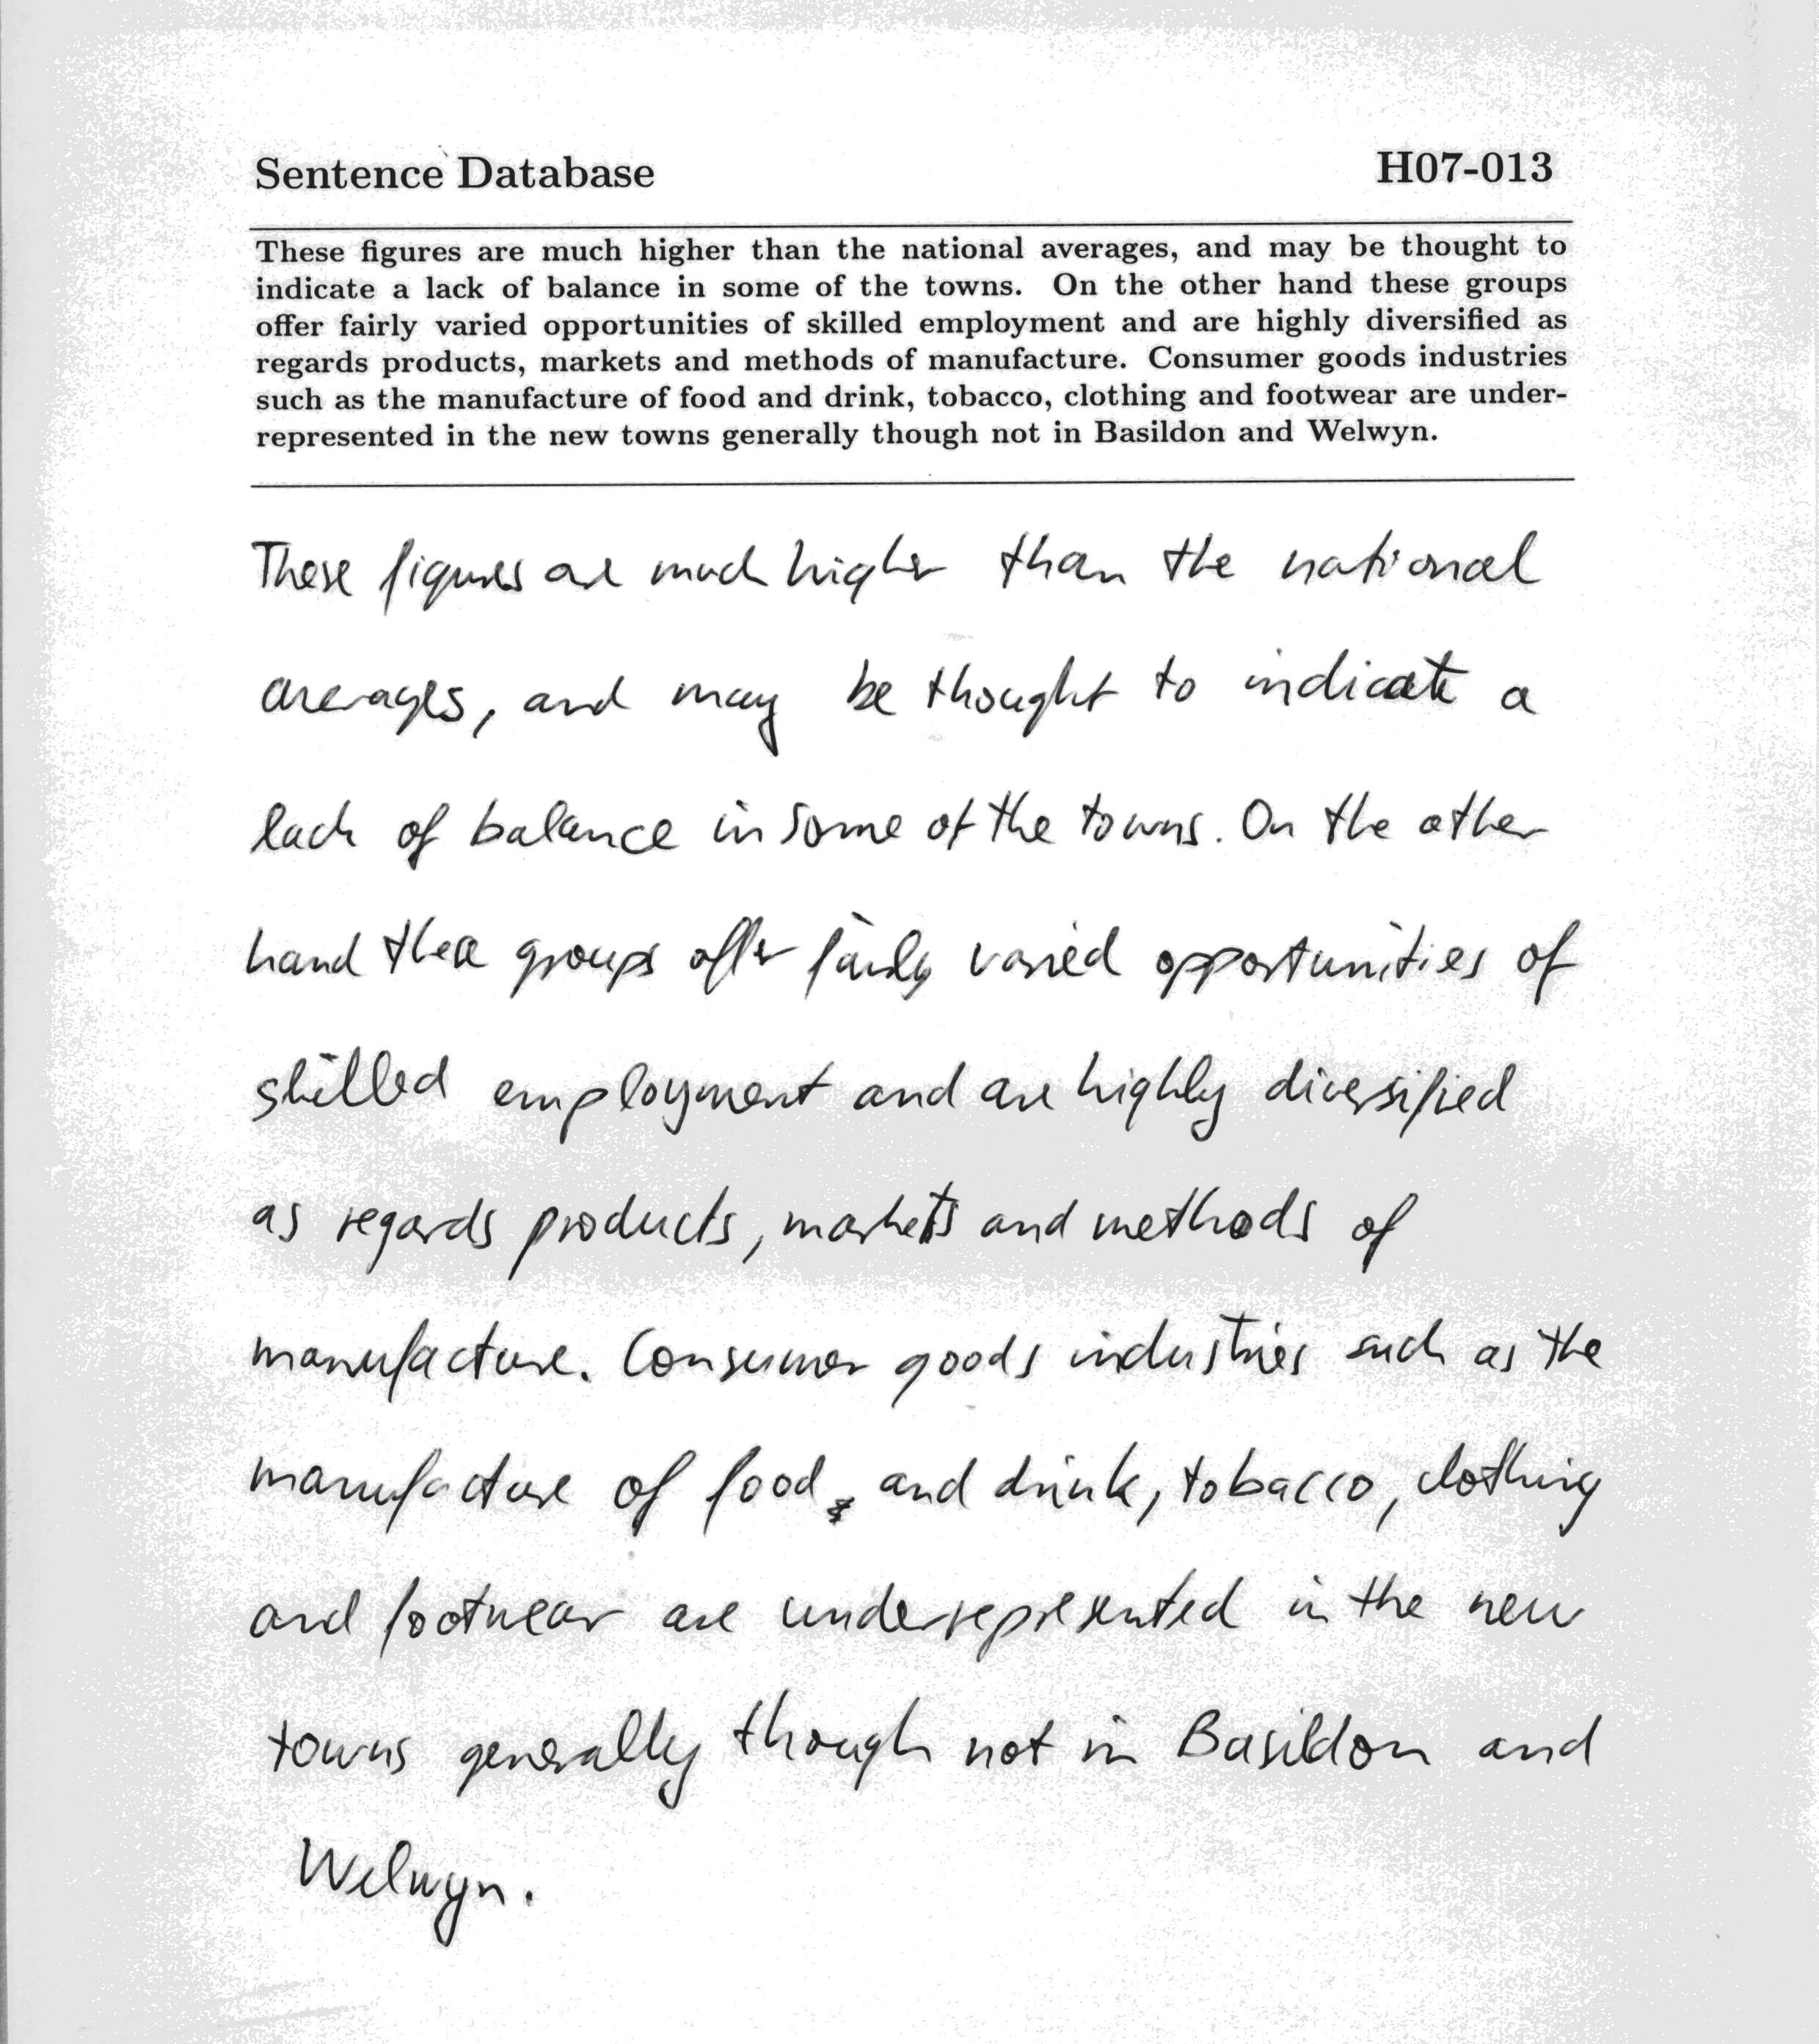 Sentence Database H07-013
These figures are much higher than the national averages, and may be thought to
indicate a lack of balance in some of the towns. On the other hand these groups
offer fairly varied opportunities of skilled employment and are highly diversified as
regards products, markets and methods of manufacture. Consumer goods industries
such as the manufacture of food and drink, tobacco, clothing and footwear are under-
represented in the new towns generally though not in Basildon and Welwyn.
These figures are much higher than the national
averages, and may be thought to indicate a
lack of balance in some of the towns. On the other
hand these groups offer fairly varied opportunities of
skilled employment and are highly diversified
as regards products, markets and methods of
manufacture. Consumer goods industries such as the
manufacture of food and drink, tobacco, clothing
and footwear are underrepresented in the new
towns generally though not in Basildon and
Welwyn.